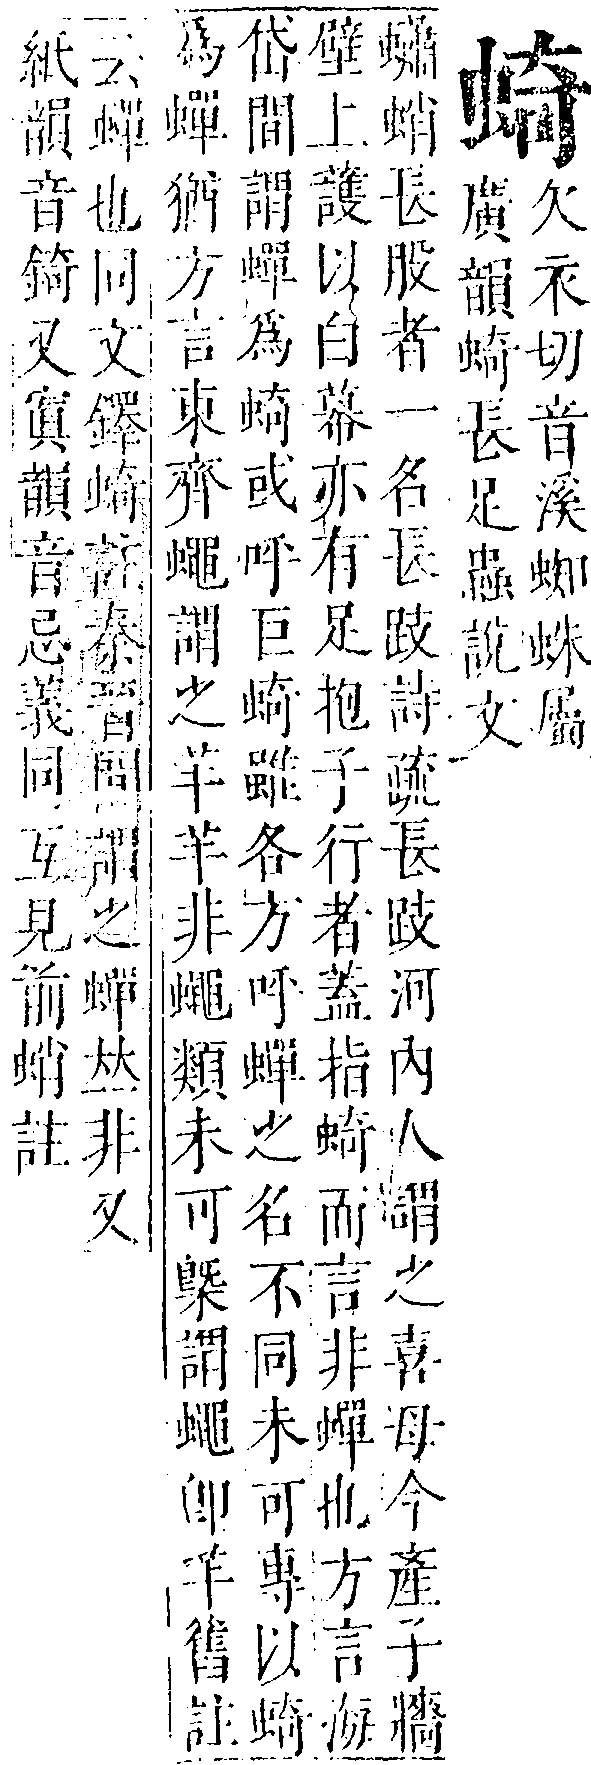 蜞
欠衣切音溪蜘蛛屬
廣韻蜞長足蟲說文
蠨蛸長股者一名長跂詩疏長跂河內人謂之喜母今產子牆
壁上護以白幕亦有足抱子行者蓋指蜞而言非蟬也方言海
岱間謂蟬為蜞或呼巨蜞雖各方呼蟬之名不同未可專以蜞
為蟬猶方言東齊蠅謂之羊羊非蠅類未可槩謂蠅卽羊舊註
云蟬也同文鐸蜞註秦晉間謂之蟬𠀤非又
紙韻音錡又寘韻音忌義同互見前蛸註